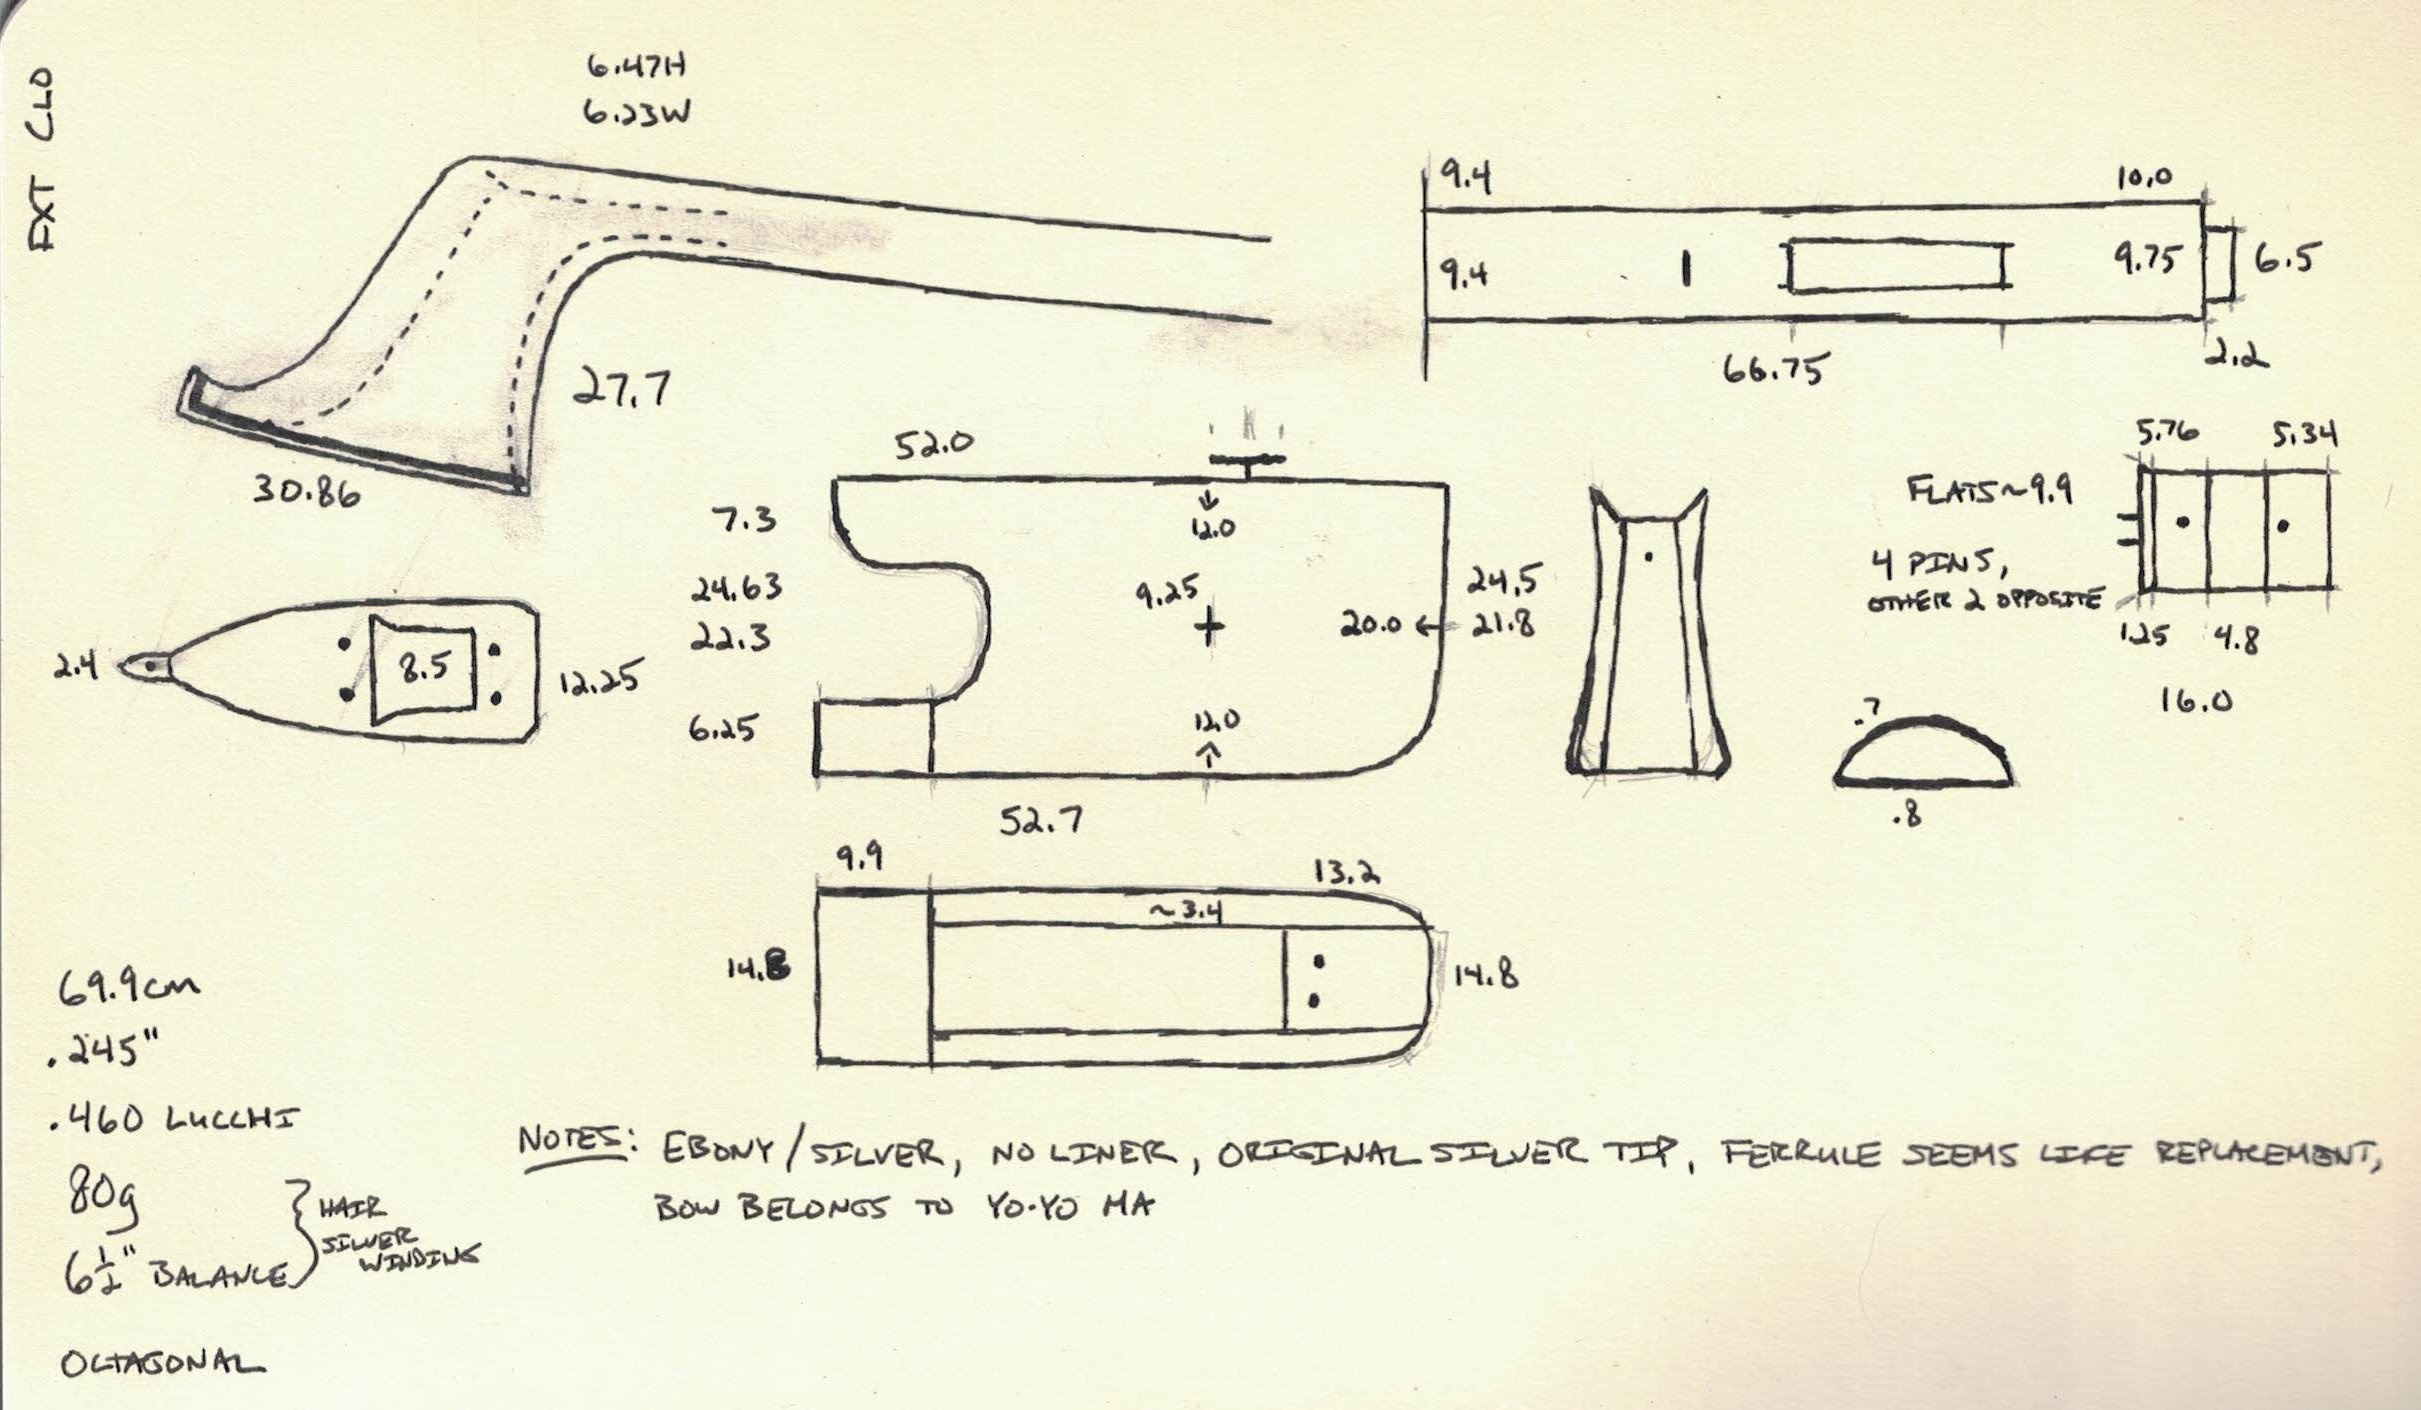 FXT CLO
6.47H
6.23W
27.7
30.86
9.4
10.0
9.4
9.75
6.5
66.75
2.2
52.0
7.3
12.0
24.63
9.25
24.5
22.3
20.0 ←
21.8
6.25
12.0
52.7
5.76
5.34
FLATS ~ 9.9
4 PINS,
OTHER 2 OPPOSITE
1.25
4.8
16.0
.7
.8
2.4
8.5
12.25
9.9
13.2
~3.4
14.8
69.9cm
.245"
.460 LUCCHI
80g
6½" BALANCE
HAIR
SILVER
WINDING
OCTAGONAL
NOTES: EBONY/SILVER, NO LINER, ORIGINAL SILVER TIP, FERRULE SEEMS LIKE REPLACEMENT,
BOW BELONGS TO YO-YO MA